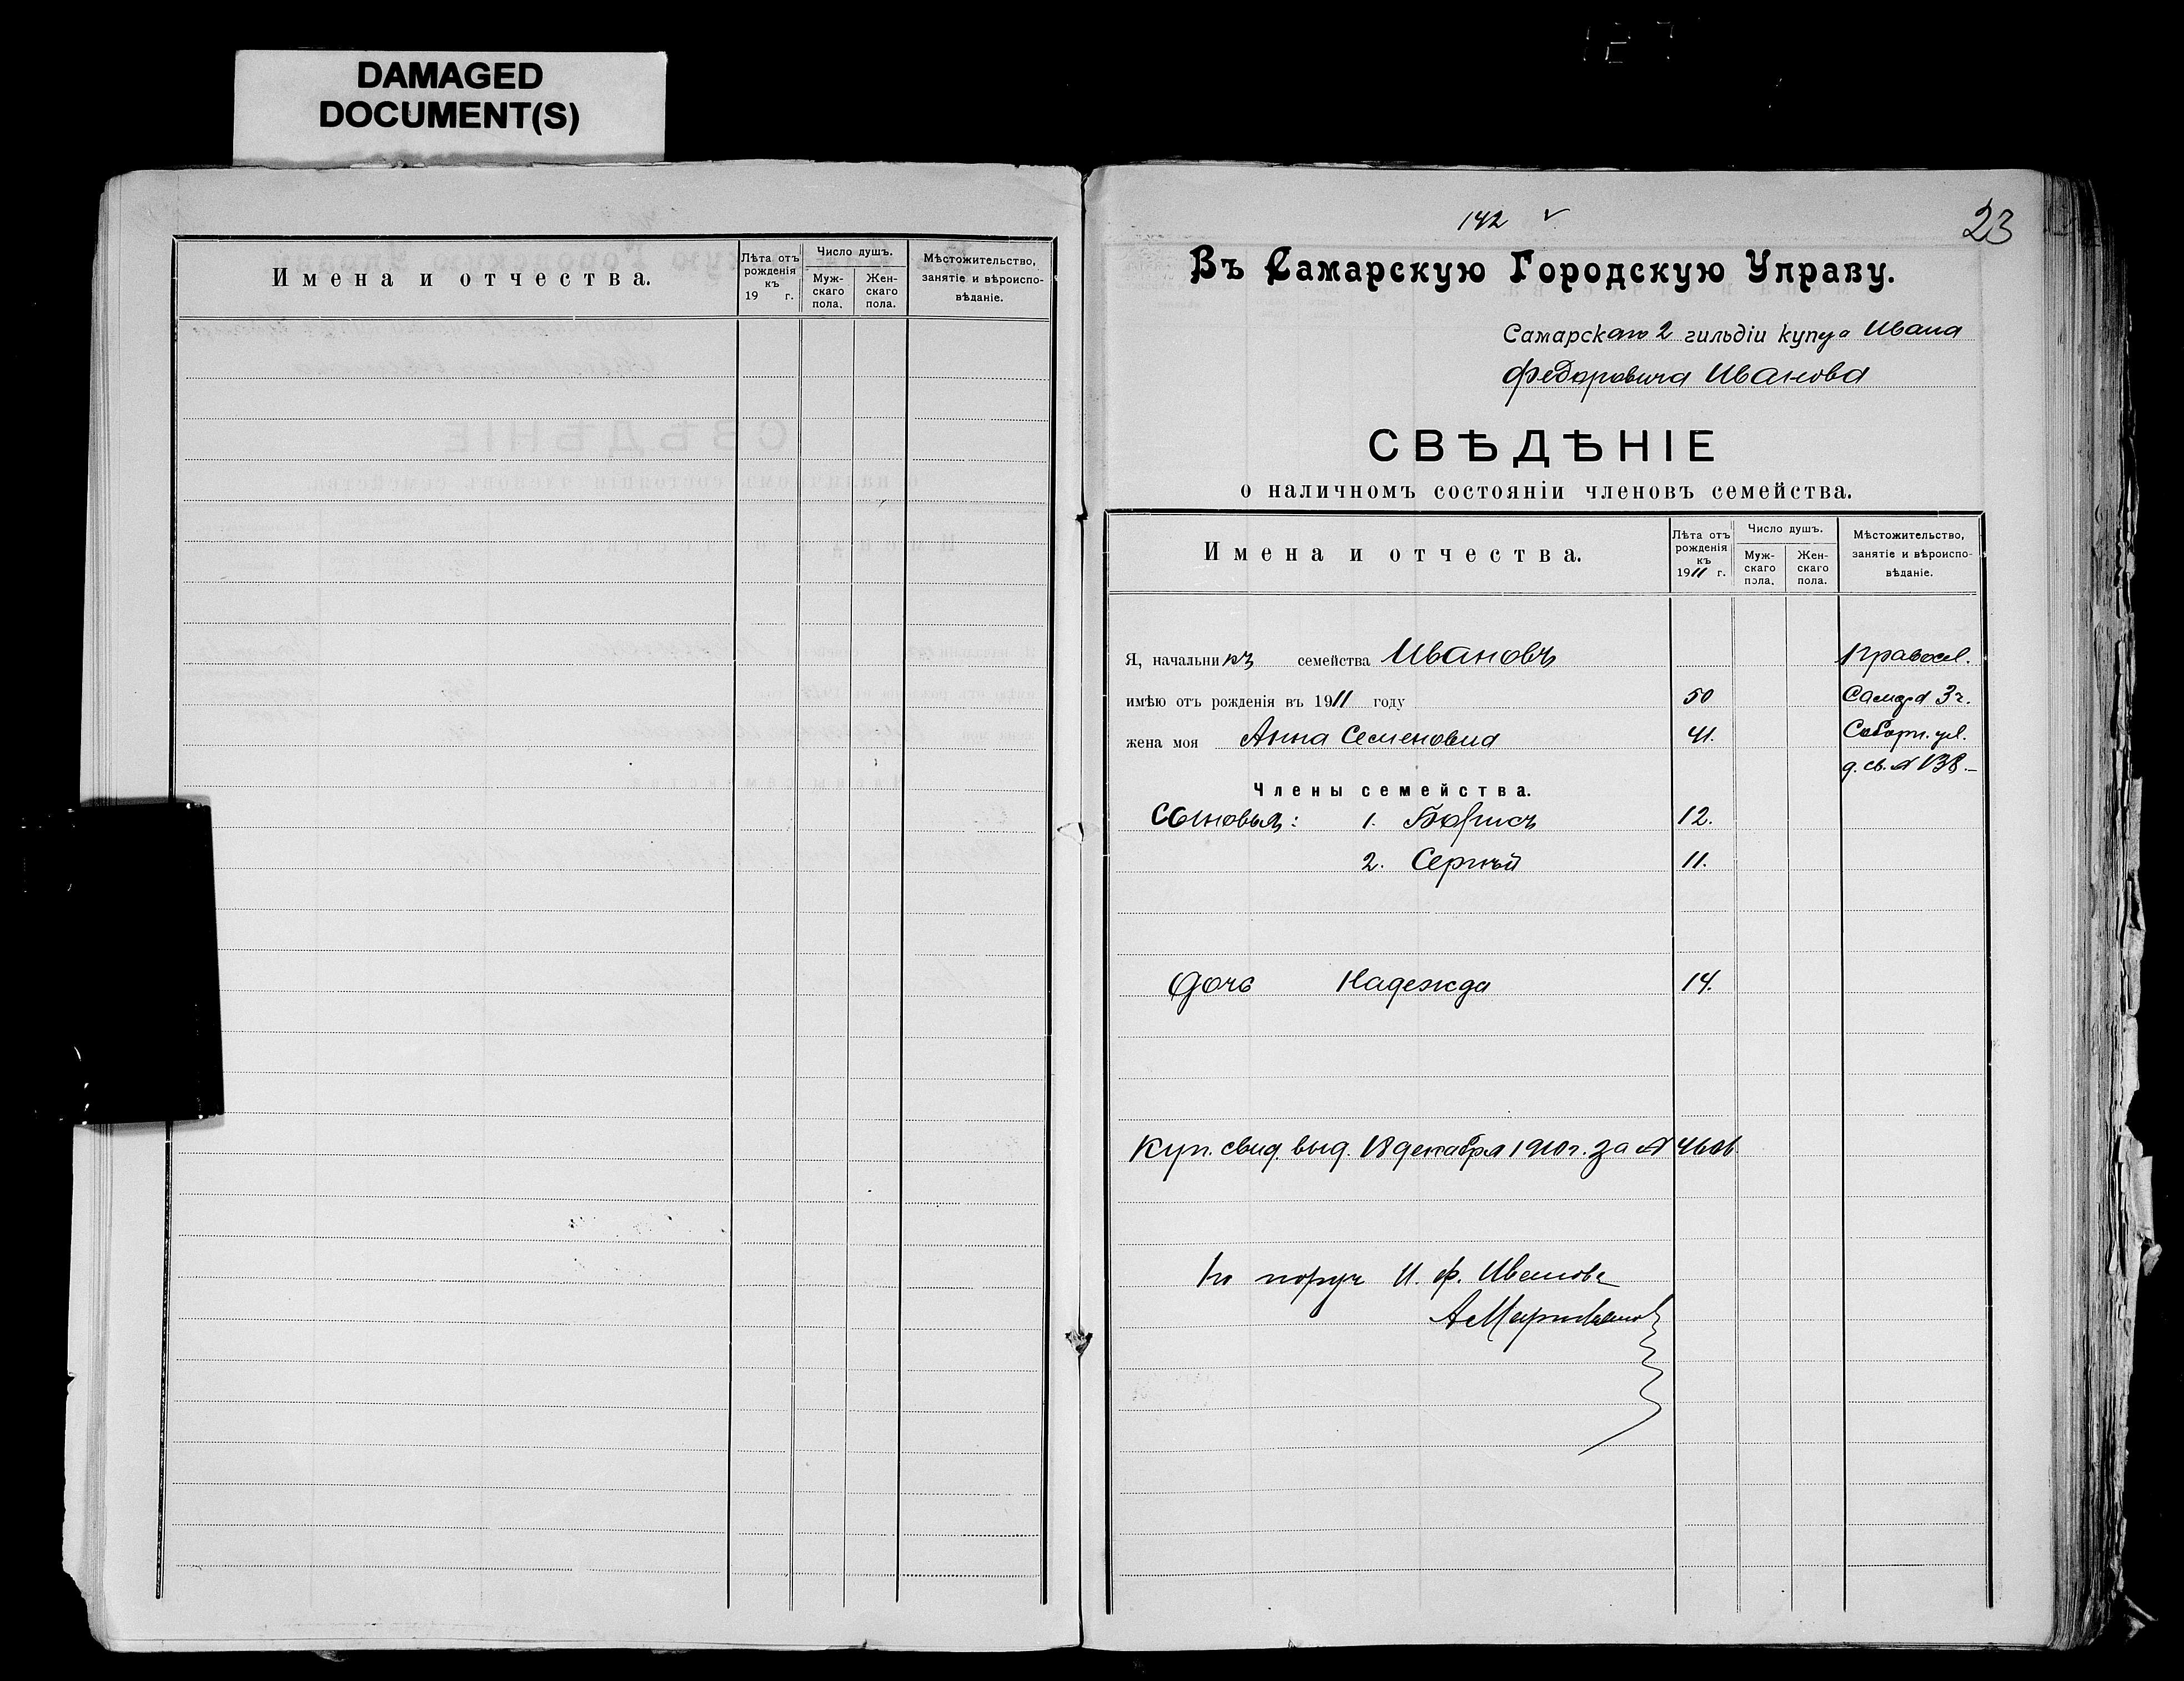 DAMAGED
DOCUMENT(S)
Имена и отчества.
Лѣта отъ рожденія къ 19 г.
Число душъ.
Муж-скаго пола.
Жен-скаго пола.
Мѣстожительство, занятіе и вѣроиспо-вѣданіе.
142
23
Въ Самарскую Городскую Управу.
Самарскаго 2 гильдіи купца Ивана
Федоровича Иванова
СВѢДѢНІЕ
о наличномъ состояніи членовъ семейства.
Имена и отчества.
Лѣта отъ рожденія къ 1911 г.
Число душъ.
Муж-скаго пола.
Жен-скаго пола.
Мѣстожительство, занятіе и вѣроиспо-вѣданіе.
Я, начальникъ семейства Ивановъ Правосл.
имѣю отъ рожденія въ 1911 году 50 Самара 3 ч.
жена моя Анна Семеновна 41. Соборн. ул.
д. св. № 138.—
Члены семейства.
Сыновья: 1. Борисъ 12.
2. Сергѣй 11.
Дочь Надежда 14.
Куп. свид. выд. 18 декабря 1910 г. за №
По поруч И. Ф. Иванова